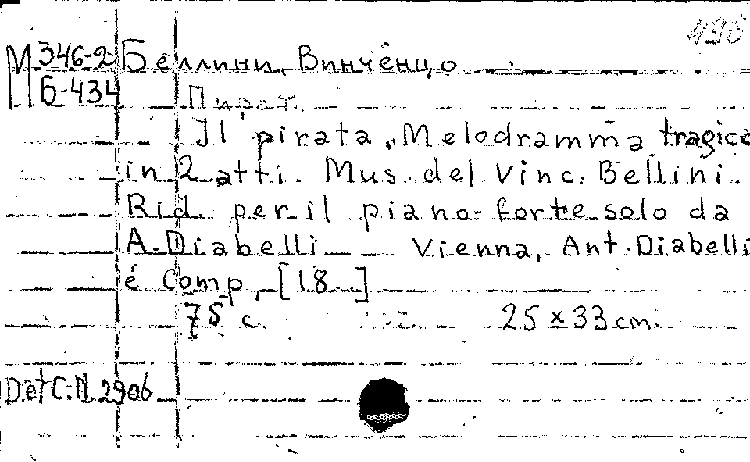 498
М 346-2 Беллини, Винченцо
Б-434 Пират.
Il pirata, Melodramma tragico
in 2 atti. Mus. del Vinc. Bellini.
Rid. per il piano-forte solo da
A. Diabelli Vienna, Ant. Diabelli
é Comp, [18 ]
75 c. 25 x 33 cm.
D et C. N. 2906